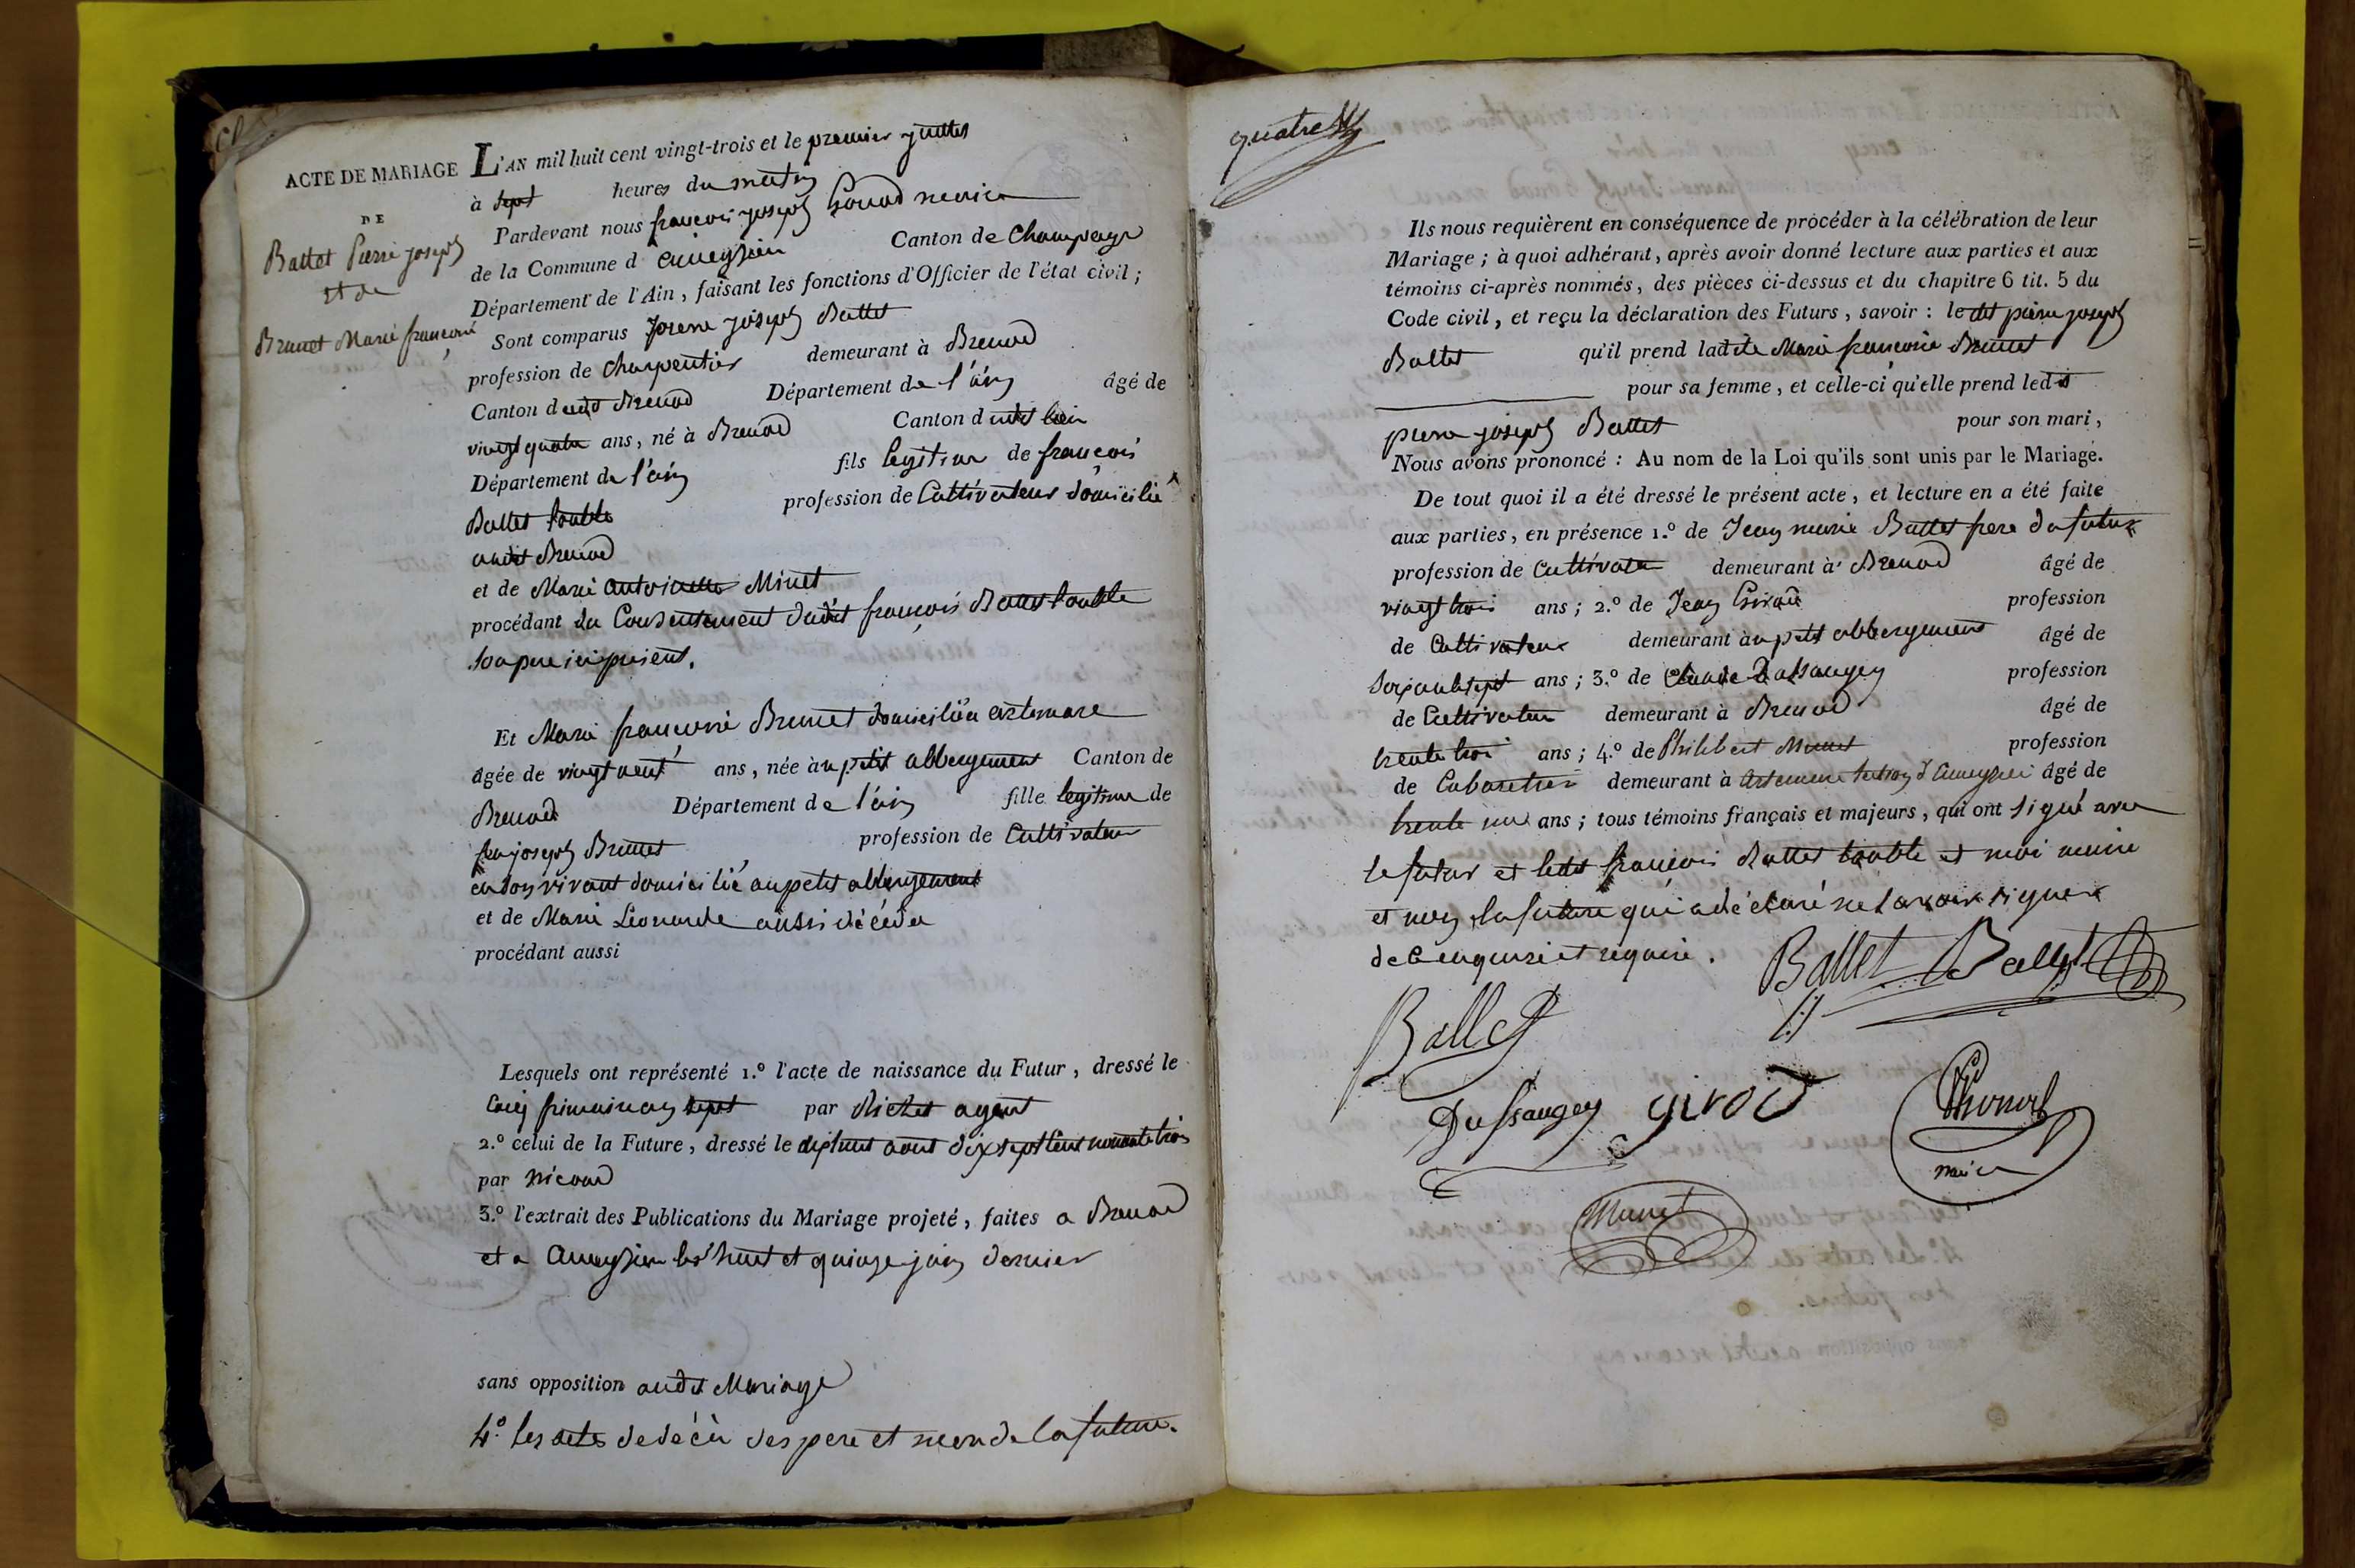 ACTE DE MARIAGE
DE
Ballet Pierre joseph
et de
Brunet Marie françoise
L'AN mil huit cent vingt-trois et le premier juillet
à sept heures du matin
Pardevant nous françois joseph maire
de la Commune d'ameyzieu Canton de Champagne
Département de l'Ain, faisant les fonctions d'Officier de l'état civil;
Sont comparus pierre joseph Ballet
profession de charpentier demeurant à Brenod
Canton dudit Brenod Département de l'ain âgé de
vingt quatre ans, né à Brenod Canton dudit lieu
Département de l'ain fils legitime de françois
Ballet profession de Cultivateur domicilié
audit Brenod
et de Marie antoinette Minet
procédant du Consentement dudit françois Ballet
son pere ici présent.
Et Marie françoise Brunet domiciliée a artemare
âgée de vingt neuf ans, née au petit abbergement Canton de
Brenod Département de l'ain fille legitime de
feu joseph Brunet profession de Cultivateur
en son vivant domicilié au petit abbergement
et de Marie Léonarde aussi décédée
procédant aussi
Lesquels ont représenté 1.º l'acte de naissance du Futur, dressé le
cinq frimaire an sept par Richet agent
2.º celui de la Future, dressé le dixhuit aout dix sept cent nonante trois
par nicoud
3.º l'extrait des Publications du Mariage projeté, faites a Brenod
et a ameyzieu les huit et quinze juin dernier
sans opposition audit Mariage
4.º les actes de décès des pere et mere de la future.
quatre
Ils nous requièrent en conséquence de procéder à la célébration de leur
Mariage; à quoi adhérant, après avoir donné lecture aux parties et aux
témoins ci-après nommés, des pièces ci-dessus et du chapitre 6 tit. 5 du
Code civil, et reçu la déclaration des Futurs, savoir: ledit pierre joseph
Ballet qu'il prend ladite Marie françoise Brunet
pour sa femme, et celle-ci qu'elle prend ledit
pierre joseph Ballet pour son mari,
Nous avons prononcé: Au nom de la Loi qu'ils sont unis par le Mariage.
De tout quoi il a été dressé le présent acte, et lecture en a été faite
aux parties, en présence 1.º de Jean marie Ballet frere du futur
profession de Cultivateur demeurant à Brenod âgé de
vingt trois ans; 2.º de Jean Girod profession
de Cultivateur demeurant au petit abbergement âgé de
soixante sept ans; 3.º de Claude Dussaugey profession
de Cultivateur demeurant à Brenod âgé de
trente trois ans; 4.º de Philibert Munet profession
de Cabaretier demeurant à artemare section d'ameyzieu âgé de
trente un ans; tous témoins français et majeurs, qui ont signé avec
le futur et ledit françois Ballet et moi maire
et non la future qui a déclaré ne savoir signer
de ce enquise et requise.
Ballet Ballet
Ballet
Dussaugey girod
maire
Munet